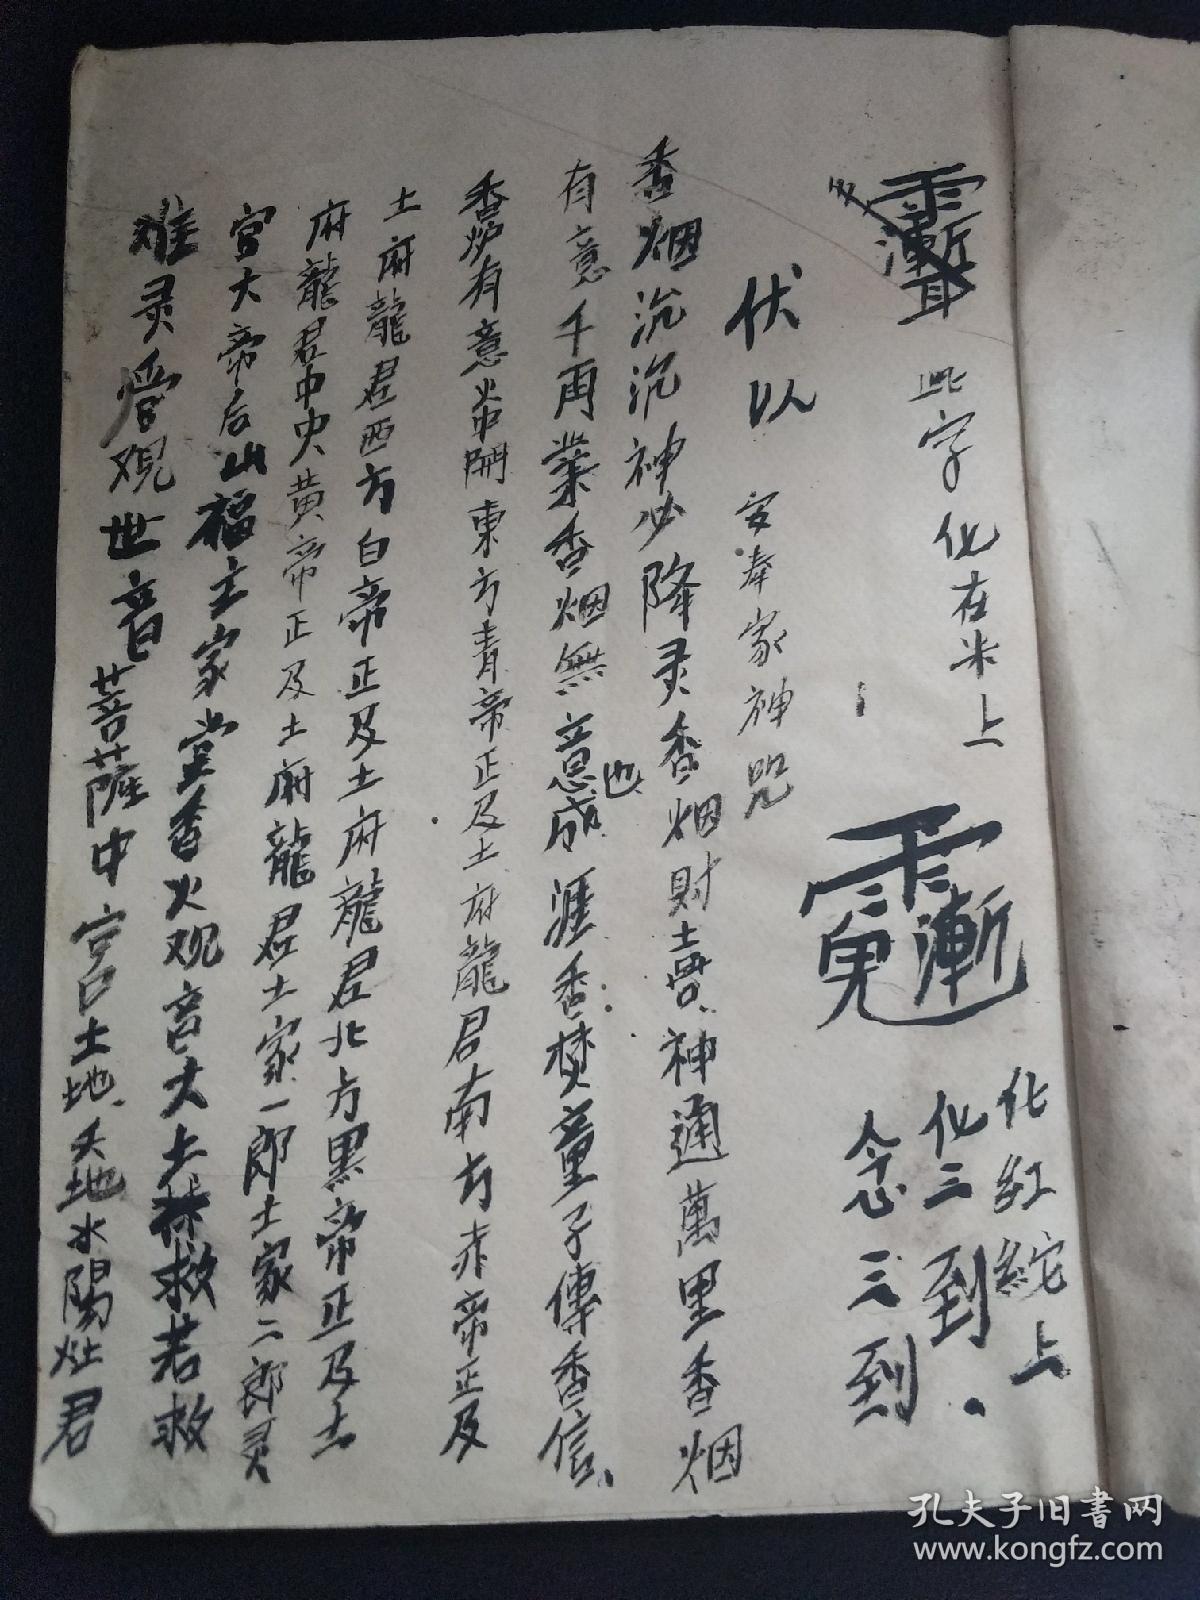 此字化在米上
化紅綻上
化三到
念三到
伏以
安奉家神咒
香烟沉沉神必降灵香烟財壽神通萬里香烟
有意千両業香烟無意成涯香焚童子傳香信
也
香炉有意 開東方青帝正及土府龍君南方赤帝正及
土府龍君西方白帝正及土府龍君北方黑帝正及土
府龍君中央黄帝正及土府龍君土家一郎土家二郎灵
官大帝后山福主家堂香火观音大士 救若救
难灵 观世音菩薩中宫土地天地水陽灶君
孔夫子旧书网
www.kongfz.com